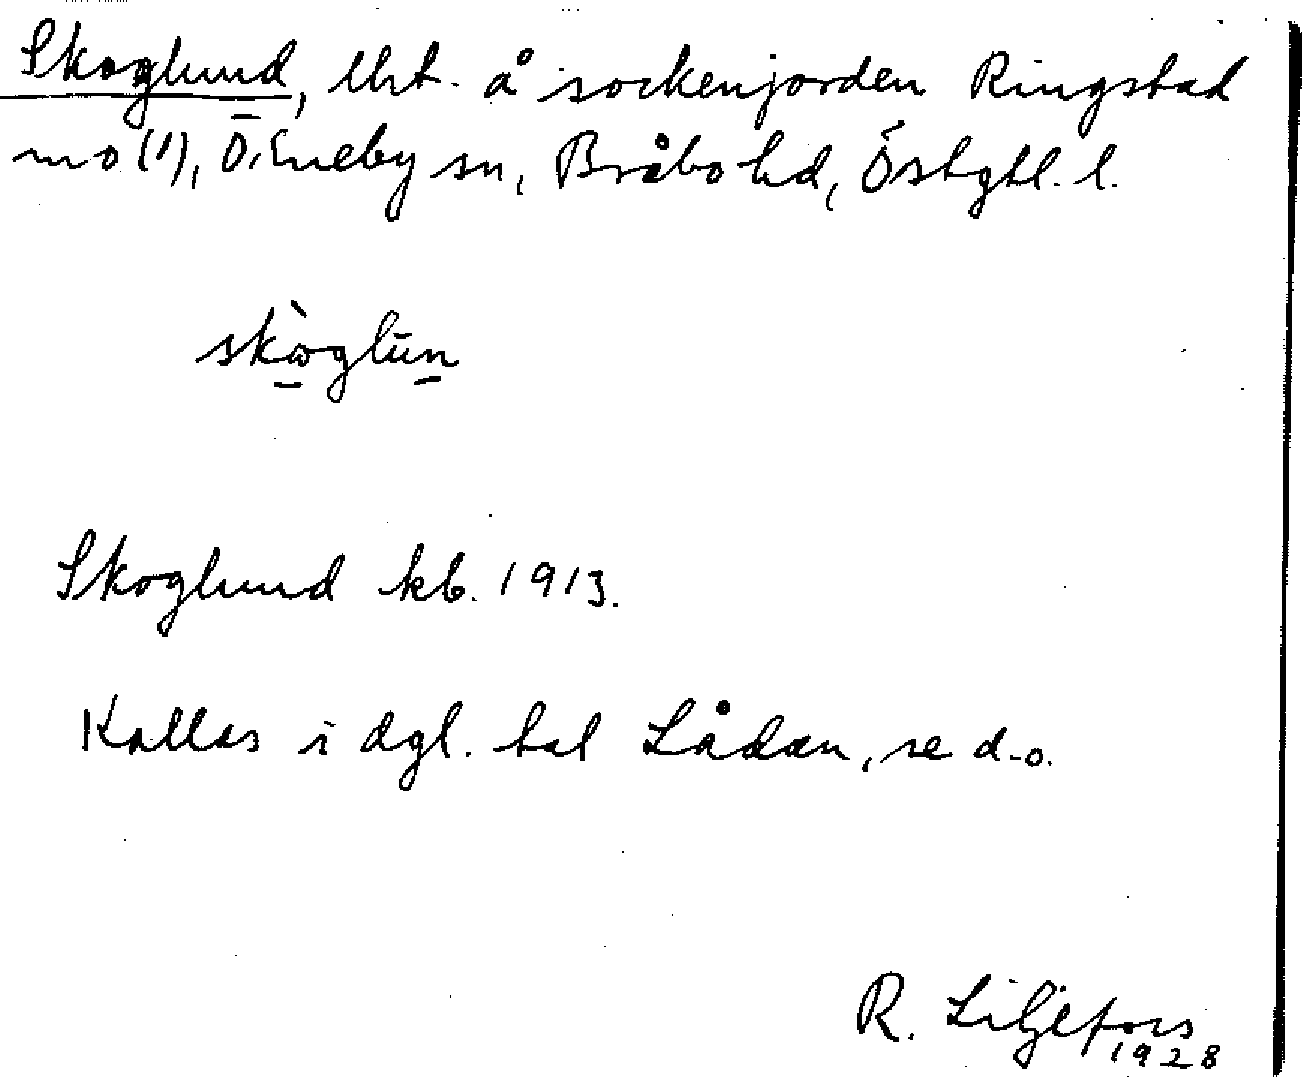 Skoglund, lht. å sockenjorden Ringstad
mo (1), Ö. Eneby sn, Bråbo hd, Östgtl. l.
skòglūn
Skoglund kb. 1913.
Kallas i dgl. tal Lådan, se d.o.
R. Liljefors
1928